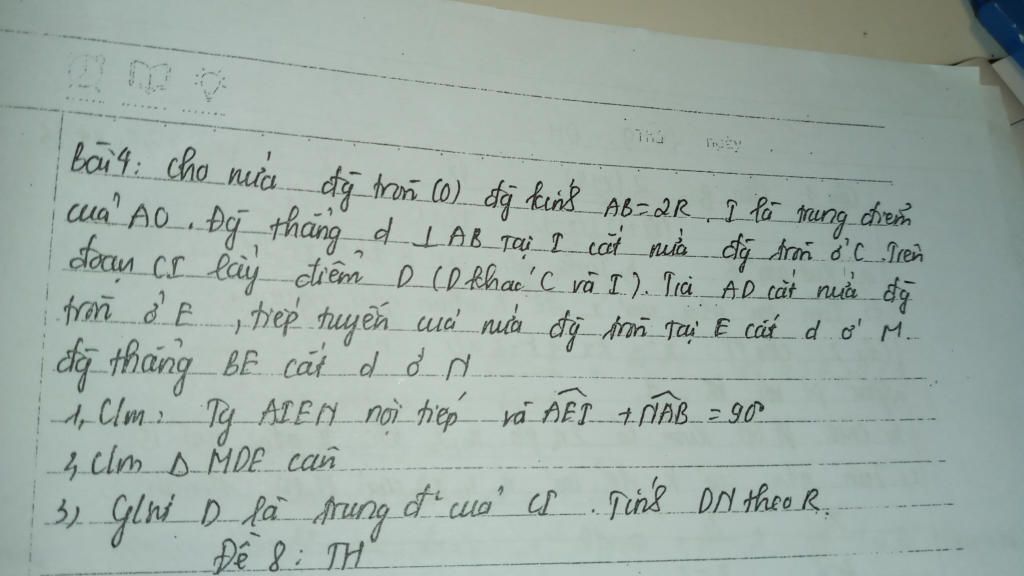 Thứ ngày
Bài 4: Cho nửa đg̃ tròn (O) đg̃ kính AB = 2R. I là trung điểm
của AO. Đg̃ thẳng d ⊥ AB tại I cắt nửa đg̃ tròn ở C. Trên
đoạn CI lấy điểm D (D khác C và I). Tia AD cắt nửa đg̃
tròn ở E, tiếp tuyến của nửa đg̃ tròn tại E cắt d ở M.
đg̃ thẳng BE cắt d ở N
1, C/m: Tg AIEN nội tiếp và ÂEI + N̂AB = 90°
2, C/m Δ MDE cân
3) G/sử D là trung đ² của CI. Tính DN theo R.
Đề 8: TH